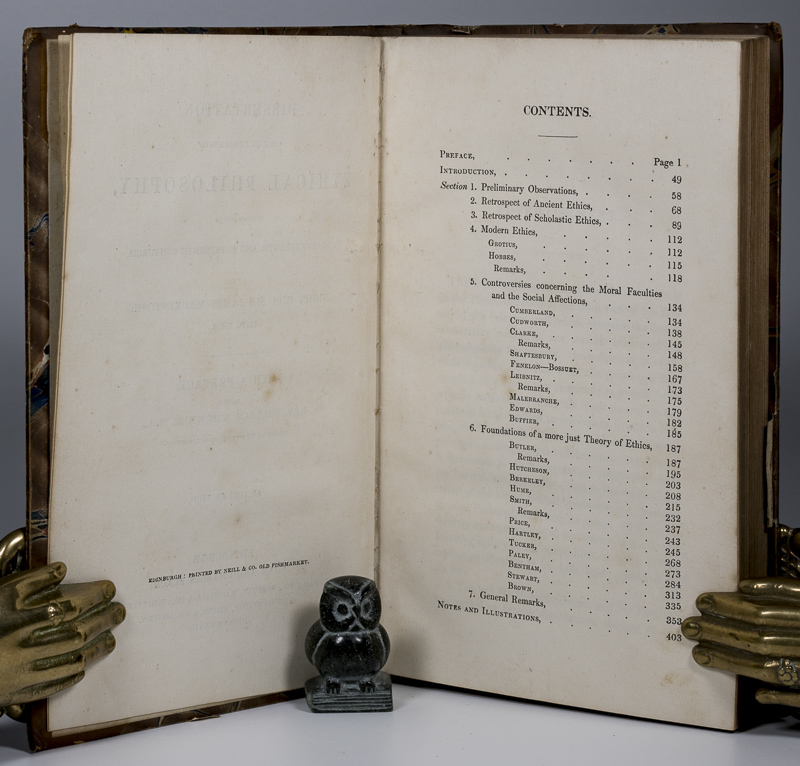 EDINBURGH: PRINTED BY NEILL & CO. OLD FISHMARKET.
CONTENTS.
PREFACE, . . . . . . . Page 1
INTRODUCTION, . . . . . . . . 49
Section 1. Preliminary Observations, . . . . 58
2. Retrospect of Ancient Ethics, . . . 68
3. Retrospect of Scholastic Ethics, . . . 89
4. Modern Ethics, . . . . . 112
GROTIUS, . . . . . . 112
HOBBES, . . . . . . 115
Remarks, . . . . . . 118
5. Controversies concerning the Moral Faculties
and the Social Affections, . . . . 134
CUMBERLAND, . . . . . 134
CUDWORTH, . . . . . 138
CLARKE, . . . . . 145
Remarks, . . . . . 148
SHAFTESBURY, . . . . . 158
FENELON—BOSSUET, . . . . 167
LEIBNITZ, . . . . . 173
Remarks, . . . . . 175
MALEBRANCHE, . . . . . 179
EDWARDS, . . . . . 182
BUFFIER, . . . . . 185
6. Foundations of a more just Theory of Ethics, 187
BUTLER, . . . . . 187
Remarks, . . . . . 195
HUTCHESON, . . . . . 203
BERKELEY, . . . . . 208
HUME, . . . . . 215
SMITH, . . . . . 232
Remarks, . . . . . 237
PRICE, . . . . . 243
HARTLEY, . . . . . 245
TUCKER, . . . . . 268
PALEY, . . . . . 273
BENTHAM, . . . . . 284
STEWART, . . . . . 313
BROWN, . . . . . 335
7. General Remarks, . . . . . 353
NOTES AND ILLUSTRATIONS, . . . . . 403